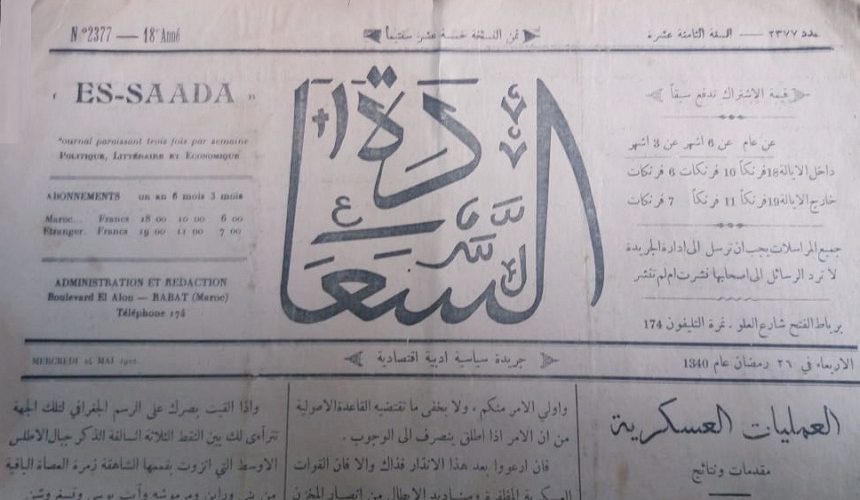 N.º 2377 — 18ᵉ Anné
ثمن النسخة خمسة عشر سنتيماً
عدد ٢٣٧٧ — السنة الثامنة عشرة
« ES-SAADA »
Journal paraissant trois fois par semaine
POLITIQUE, LITTÉRAIRE ET ECONOMIQUE
ABONNEMENTS un an 6 mois 3 mois
Maroc... Francs 18 00 10 00 6 00
Etranger. Francs 19 00 11 00 7 00
ADMINISTRATION ET REDACTION
Boulevard El Alou — RABAT (Maroc)
Téléphone 174
السعادة
قيمة الاشتراك تدفع سبقاً
عن عام عن 6 اشهر عن 3 اشهر
داخل الايالة 18 فرنكاً 10 فرنكات 6 فرنكات
خارج الايالة 19 فرنكاً 11 فرنكاً 7 فرنكات
جميع المراسلات يجب ان ترسل الى ادارة الجريدة
لا ترد الرسائل الى اصحابها نشرت ام لم تنشر
برباط الفتح شارع العلو . نمرة التليفون 174
MERCREDI 24 MAI
جريدة سياسية ادبية اقتصادية
الاربعاء في ٢٦ رمضان عام 1340
العمليات العسكرية
مقدمات ونتائج
واولي الامر منكم ، ولا يخفى ما تقتضيه القاعدة الاصولية
من ان الامر اذا اطلق ينصرف الى الوجوب .
فان ارعووا بعد هذا الانذار فذاك والا فان القوات
العسكرية المظفرة وصناديد الابطال من انصار المخزن
واذا القيت بصرك على الرسم الجغرافي لتلك الجهة
تتراءى لك بين النقط الثلاثة السالفة الذكر جبال الاطلس
الاوسط التي انزوت بقممها الشاهقة زمرة العصاة الباقية
من بني وراين ومرموشة وآيت يوسي